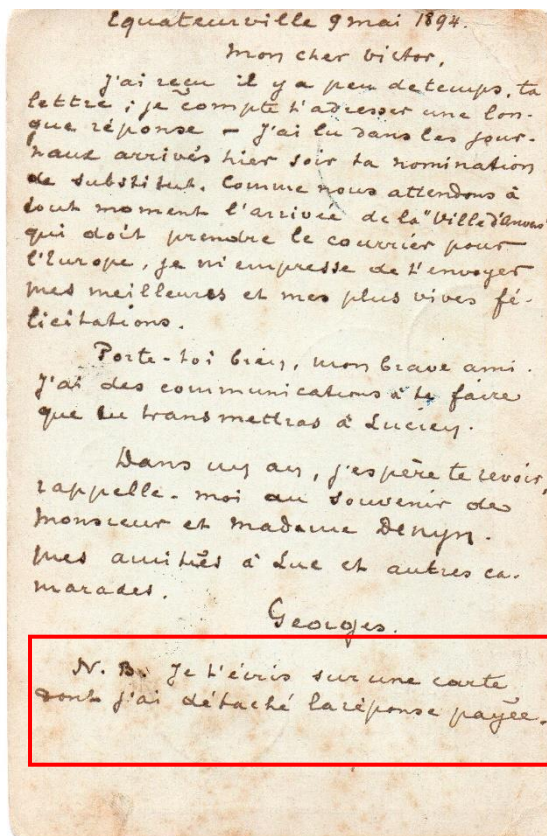 Equateurville 9 mai 1894.
Mon cher Victor,
J'ai reçu il y a peu de temps, ta
lettre ; je compte t'adresser une lon-
gue réponse – J'ai lu dans les jour-
naux arrivés hier soir ta nomination
de substitut. Comme nous attendons à
tout moment l'arrivée de la "Ville d'Anvers"
qui doit prendre le courrier pour
l'Europe, je m'empresse de t'envoyer
mes meilleures et mes plus vives fé-
licitations.
Porte-toi bien, mon brave ami.
J'ai des communications à te faire
que tu transmettras à Lucien.
Dans un an, j'espère te revoir,
rappelle-moi au souvenir de
Monsieur et Madame Denyn.
mes amitiés à Luc et autres ca-
marades.
Georges.
N. B. Je t'écris sur une carte
dont j'ai détaché la réponse payée.